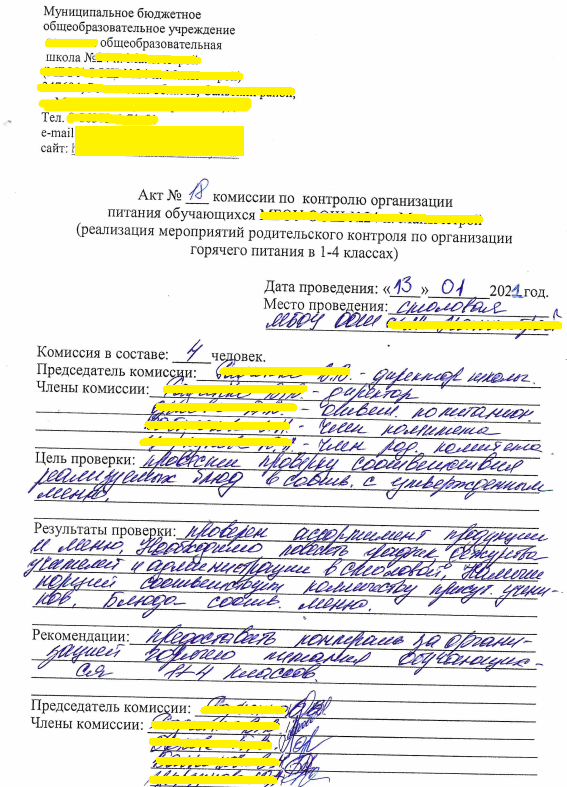 Муниципальное бюджетное
общеобразовательное учреждение
общеобразовательная
школа №
Тел.
e-mail
сайт:
Акт № 18 комиссии по контролю организации
питания обучающихся
(реализация мероприятий родительского контроля по организации
горячего питания в 1-4 классах)
Дата проведения: «13» 01 2021 год.
Место проведения: столовая
МБОУ ООШ
Комиссия в составе: 4 человек.
Председатель комиссии: - директор школы.
Члены комиссии: - директор
- ответств. по питанию
- член комитета
- член род. комитета
Цель проверки: провести проверку соответствия
реализуемых блюд в соотв. с утвержденным
меню.
Результаты проверки: проверен ассортимент продукции
и меню. Необходимо график дежурства
учителей и администрации в столовой,
порций соответствует количеству учени-
ков. Блюда соотв. меню.
Рекомендации: за органи-
зацией горячего питания обучающих-
ся 1-4 классов.
Председатель комиссии:
Члены комиссии: